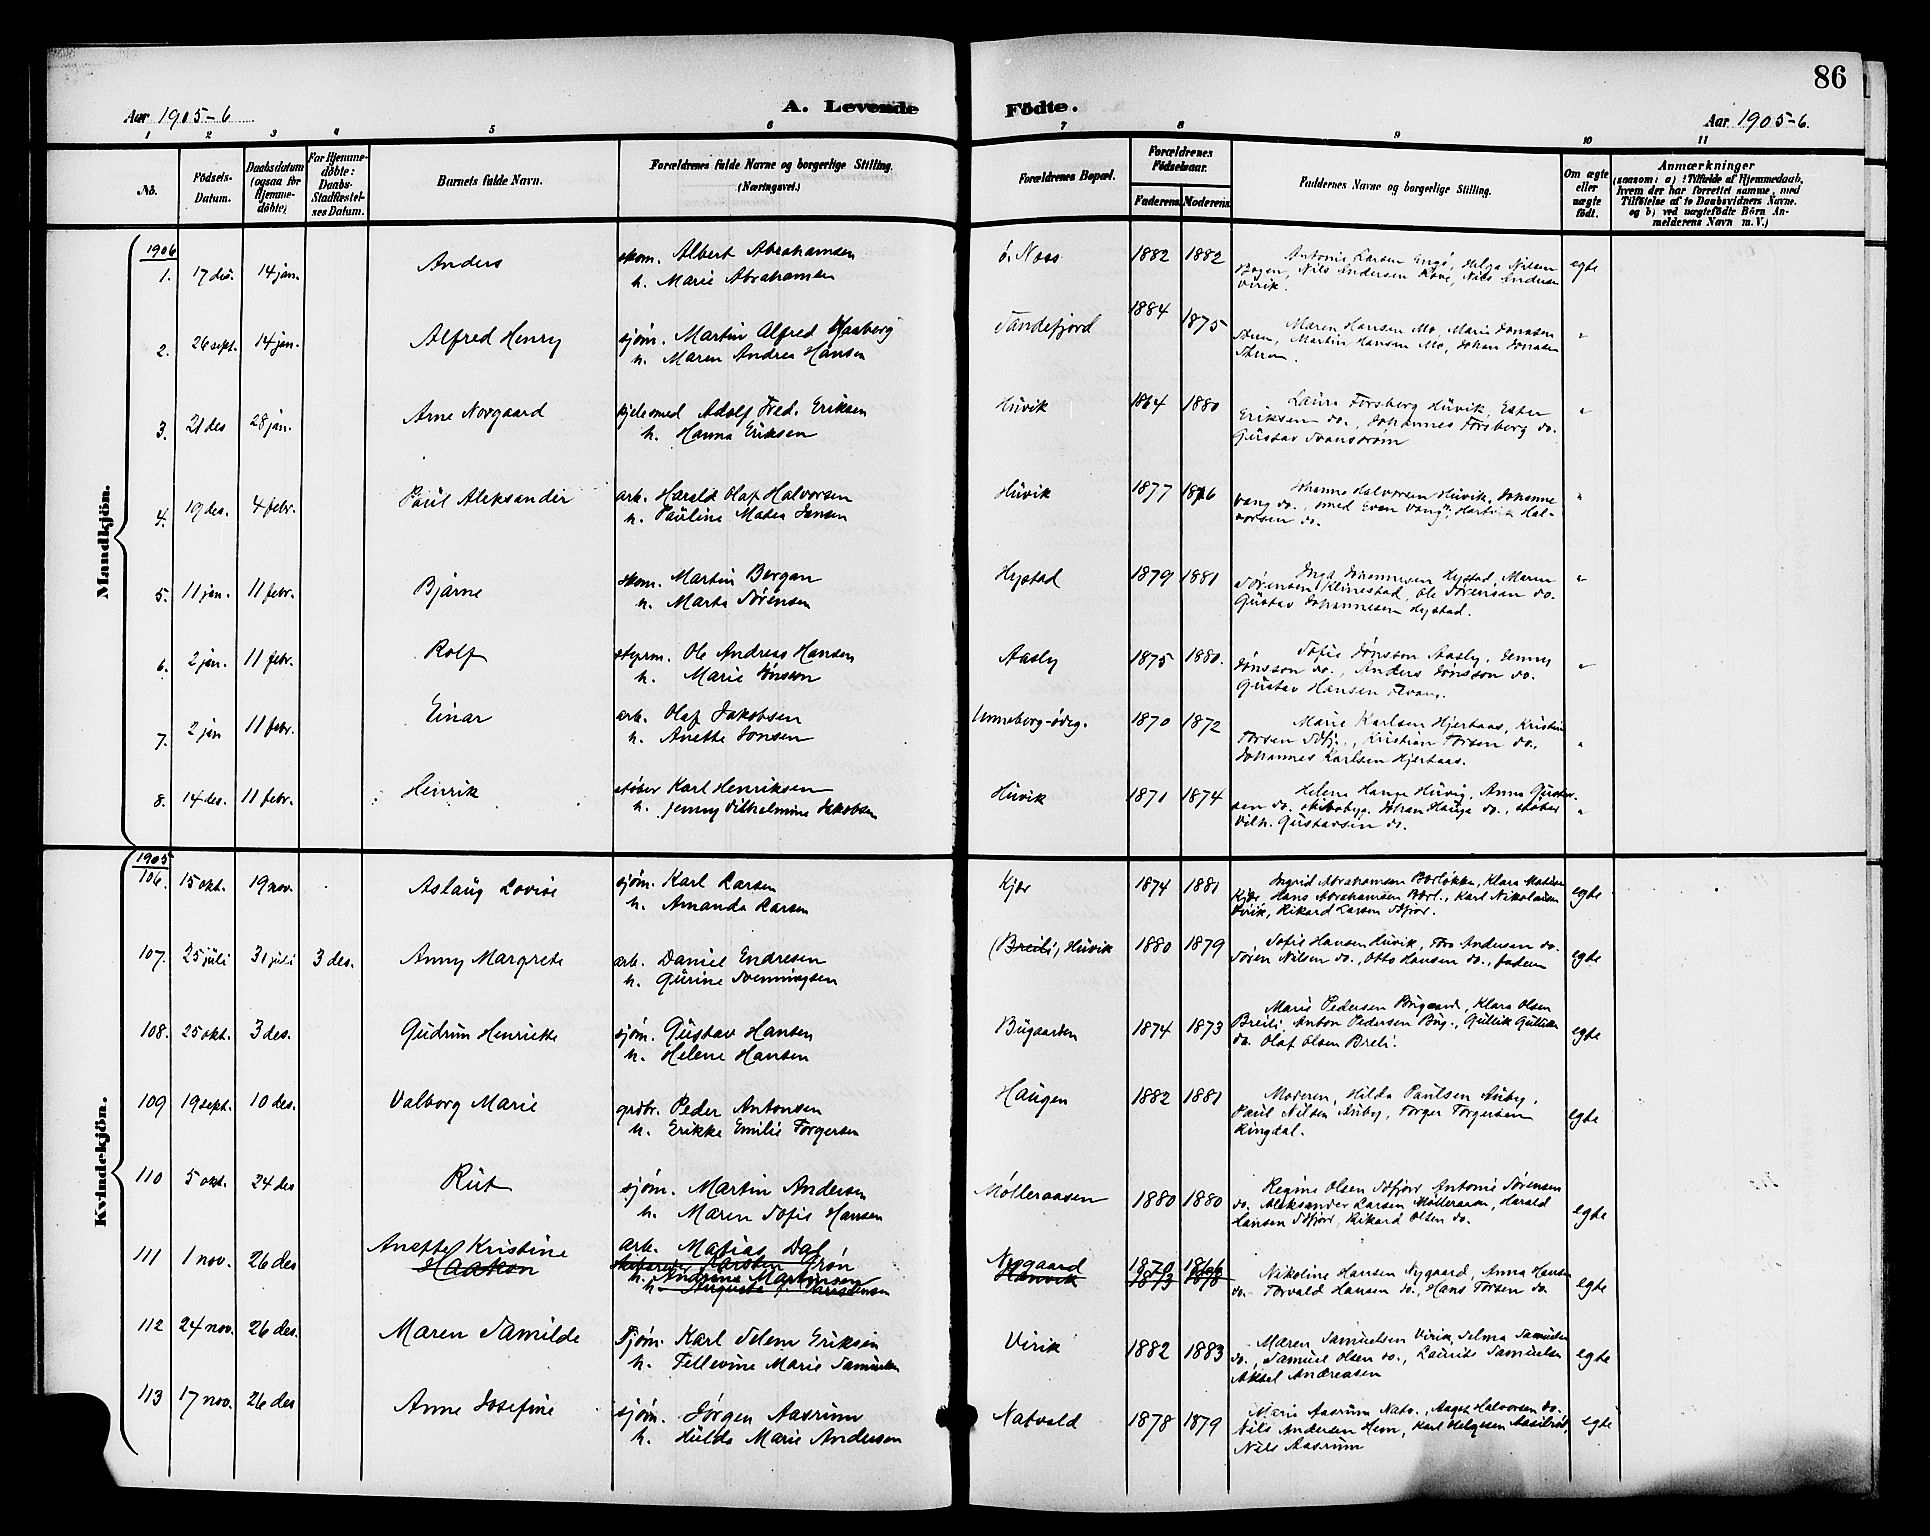 86
Aar 1905-6
A. Levende
Födte.
Aar 1905-6.
1 2 3 4 5 6 7 8 9 10 11
No.
Födsels-
Datum.
Daabsdatum
(ogsaa for
Hjemme-
döbte)
For Hjemme-
döbte:
Daabs-
Stadfæstel-
ses Datum.
Barnets fulde Navn.
Forældrenes fulde Navne og borgerlige Stilling.
(Næringsvei.)
Forældrenes Bopæl.
Forældrenes
Födselsaar.
Faderens Moderens
Faddernes Navne og borgerlige Stilling.
Om ægte
eller
uægte
födt.
Anmærkninger
(saasom: a) i Tilfælde af Hjemmedaab,
hvem der har forrettet samme, med
Tilföielse af to Daabsvidners Navne.
og b) ved uægtefödte Börn An-
melderens Navn m. V.)
Mandkjön.
1906
1. 17 des. 14 jan. Anders skom. Albert Abrahamsen
h. Marie Abrahamsen
ö. Noss 1882 1882
Antonie Larsen Engø, Helga Nilsen
Hogen, Nils Andersen Kove, Nils Andersen
Virik.
egte
2. 26 sept. 14 jan. Alfred Henry sjøm. Martin Alfred Haaberg
h. Maren Andrea Hansen
Sandefjord 1884 1875
Maren Hansen Mo, Marie Jonasen
Steen, Martin Hansen Mo, Johan Jonasen
Steen.
"
3. 21 des 28 jan. Arne Norgaard kjelesmed Adolf Fred. Eriksen
h. Hanna Eriksen
Huvik 1864 1880
Laura Forsberg Huvik, Ester
Eriksen do., Johannes Forsberg do.
Gustav Svanstrøm
"
4. 19 des. 4 febr. Paul Aleksander arb. Harald Olaf Halvorsen
h. Pauline Matea Jensen
Huvik 1877 1876
Johanne Halvorsen Huvik, Johanne
Vang do., smed Even Vang, Hartvik Hal-
vorsen do.
"
5. 11 jan. 11 febr. Bjarne skom. Martin Bergan
h. Marta Sørensen
Hystad 1879 1881
Inga Johannesen Hystad, Maren
Sørensen Klinestad, Ole Sørensen do.
Gustav Johannesen Hystad.
"
6. 2 jan. 11 febr. Rolf styrm. Ole Andreas Hansen
h. Marie Jønsson
Aasly 1875 1880.
Sofie Jønsson Aasly, Jenny
Jønsson do., Anders Jønsson do.
Gustav Hansen
"
7. 2 jan 11 febr. Einar arb. Olaf Jakobsen
h. Anette Jonsen
Unneberg-ödeg. 1870 1872
Marie Karlsen Hjertaas, Kristin
Torsen Sdfj., Kristian Torsen do.,
Johannes Karlsen Hjertaas.
"
8. 14 des. 11 febr. Henrik støber Karl Henriksen
h. Jenny Vilhelmine Jakobsen
Huvik 1871 1874
Helena Hauge Huvig, Anna Gustav-
sen do. skibsbyg. Johan Hauge do., støber
Vilh. Gustavsen do.
"
Kvindekjön.
1905
106. 15 okt. 19 nov. Aslaug Lovise sjøm. Karl Larsen
h. Amanda Larsen
Kjær 1874 1881
Ingrid Abrahamsen Bærløkke, Klara Matisen
Kjær, Hans Abrahamsen Bærl., Karl Nikolaisen
Virik, Rikard Larsen Sdfjor.
egte
107. 25 juli 31 juli 3 des. Anny Margrete arb. Daniel Endresen
h. Gurine Svenningsen
(Breili), Huvik 1880 1879
Sofie Hansen Huvik, Tora Andersen do.
Søren Nilsen do., Otto Hansen do., faderen
egte
108. 25 okt. 3 des. Gudrun Henriette sjøm. Gustav Hansen
h. Helene Hansen
Bugaarden 1874 1873
Marie Pedersen Bugaard, Klara Olsen
Breili, Anton Pedersen Bug., Gullik Gulliksen
do. Olaf Olsen Breli.
egte
109 19 sept. 10 des. Valborg Marie grdbr. Peder Antonsen
h. Erikke Emilie Torgersen
Haugen 1882 1881
Moderen, Hilda Paulsen Auby,
Paul Nilsen Auby, Torger Torgersen
Ringdal.
egte
110 5 okt. 24 des Rut sjøm. Martin Andersen
h. Maren Sofie Hansen
Mölleraasen 1880 1880
Regine Olsen Sdfjor, Antonie Sørensen
do. Aleksander Larsen Mölleraasen, Harald
Hansen Sdfjor, Rikard Olsen do.
egte
111 1 nov. 26 des Anette Kristine arb. Matias Dal
Haakon Karsten Grön
h. Andrine Martinsen
Nygaard 1870 1866
Hauvik 1873 1878
Nikoline Hansen Nygaard, Anna Hansen
do. Torvald Hansen do., Hans Torsen do.
egte
112 24 nov. 26 des. Maren Samilde Sjøm. Karl Selem Eriksen
h. Tellevine Marie Samuelsen
Virik 1882 1883
Maren Samuelsen Virik, Selma Samuelsen
do., Samuel Olsen do., Laurits Samuelsen
Aksel Andreasen
egte
113 17 nov. 26 des Anne Josefine sjøm. Jørgen Aasrum
h. Hulda Marie Andersen
Natvald 1878 1879
Marie Aasrum Natv., Aaget Halvorsen do.
Nils Andersen Hem, Karl Helgesen
Nils Aasrum
egte